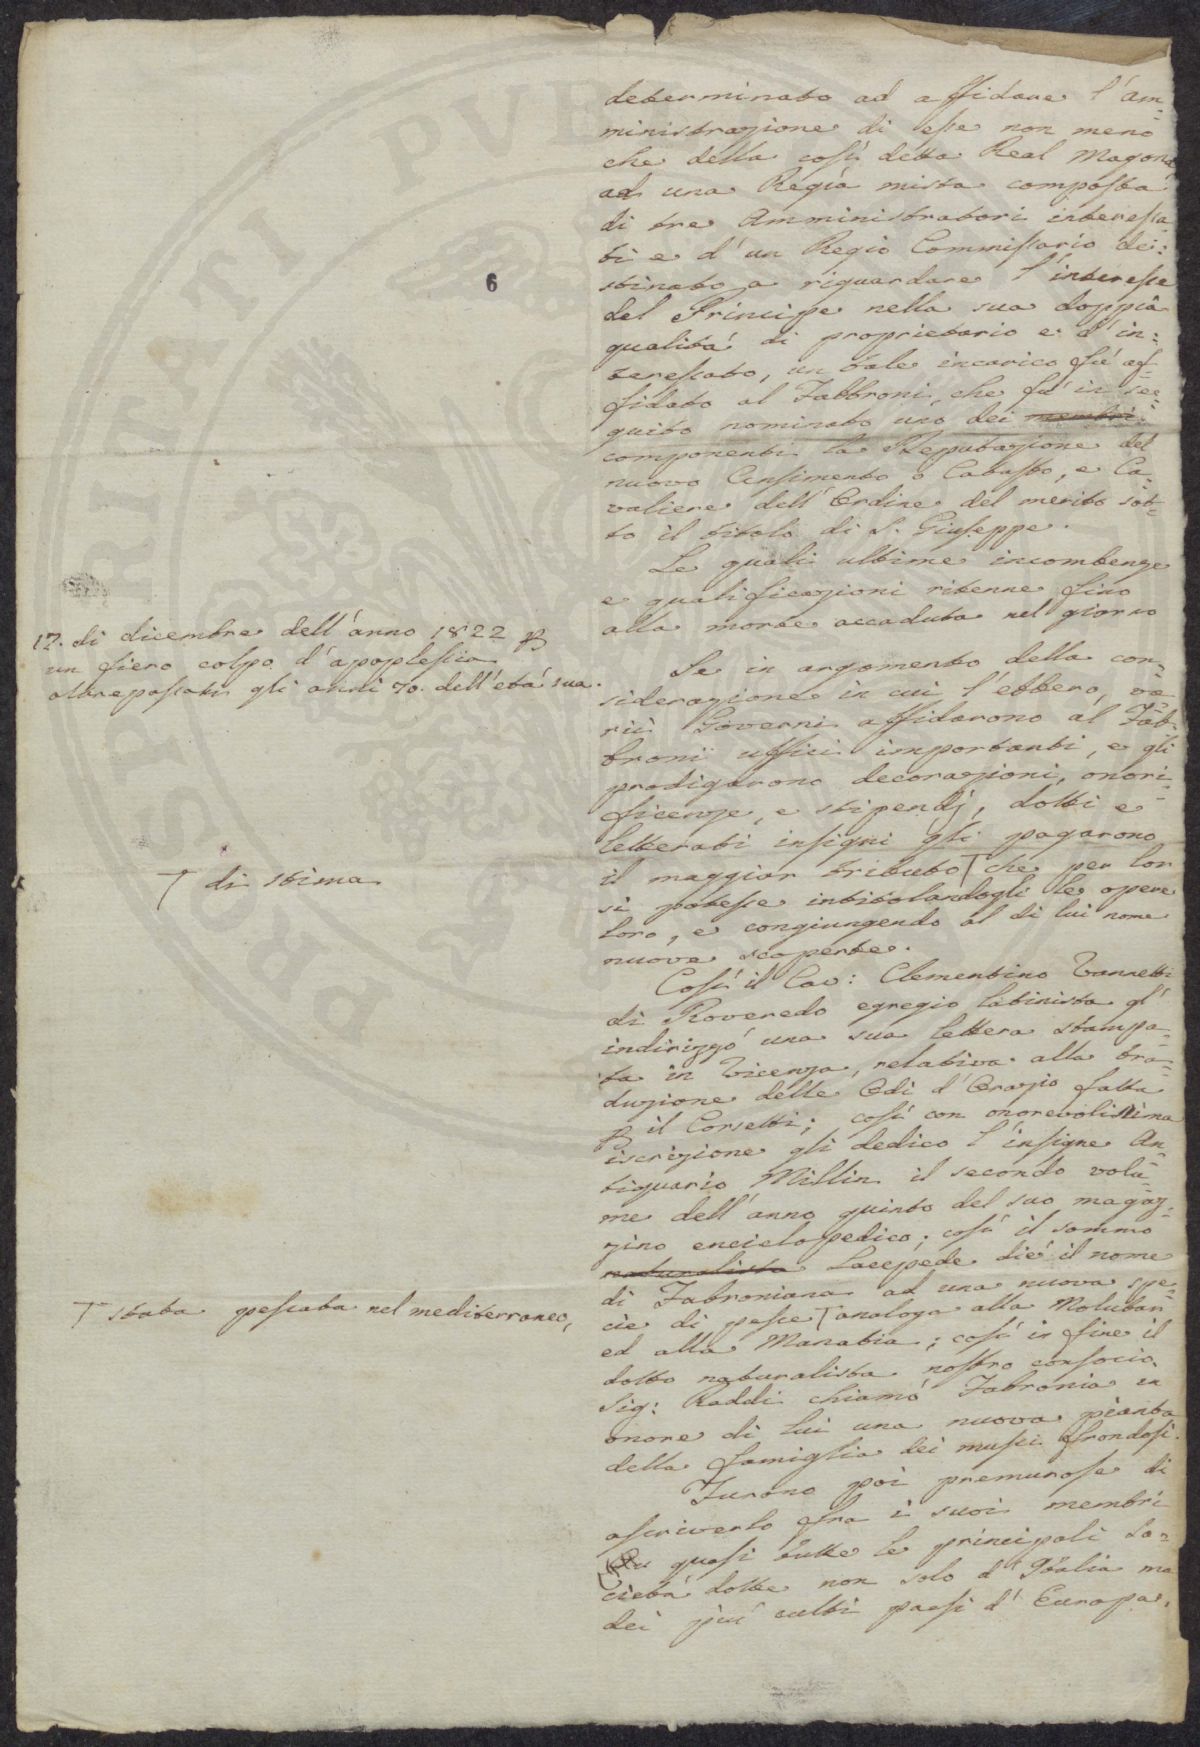 6
determinato ad affidare l'am-
ministrazione di esse non meno
che della così detta Real Magona
ad una Regìa mista composta
di tre Amministratori interessa-
ti e d'un Regio Commissario de-
stinato a riguardare l'interesse
del Principe nella sua doppia
qualità di proprietario e d'in-
teressato, un tale incarico fù af-
fidato al Fabbroni, che fù in se-
guito nominato uno dei membri
componenti la Deputazione del
nuovo Censimento o Catasto, e Ca-
valiere dell'Ordine del merito sot-
to il titolo di S. Giuseppe.
Le quali ultime incombenze
e qualificazioni ritenne fino
alla morte accaduta nel giorno
17. di dicembre dell'anno 1822 p
un fiero colpo d'apoplessia
oltrepassati gli anni 70. dell'età sua.
Se in argomento della con-
siderazione in cui l'ebbero, va-
rii Governi affidarono al Fab-
broni uffici importanti, e gli
prodigarono decorazioni, onori-
ficenze, e stipendj, dotti e
letterati insigni gli pagarono
il maggior tributo T che per lor
T di stima
si potesse intitolandogli le opere
loro, e congiungendo al di lui nome
nuove scoperte.
Così il Cav: Clementino Vannetti
di Roveredo egregio latinista gl'
indirizzò una sua lettera stampa-
ta in Vicenza, relativa alla tra-
duzione delle Odi d'Orazio fatta
p il Corsetti; così con onorevolissima
iscrizione gli dedicò l'insigne An-
tiquario Millin il secondo volu-
me dell'anno quinto del suo magaz-
zino enciclopedico; così il sommo
naturalista Lacepede diè il nome
di Fabroniana ad una nuova spe-
cie di pesce T analoga alla Molubar
T stata pescata nel mediterraneo,
ed alla Manatia; così in fine il
dotto naturalista nostro consocio
Sig: Raddi chiamò Fabronia in
onore di lui una nuova pianta
della famiglia dei musci frondosi.
Furono poi premurose di
ascriverlo fra i suoi membri
quasi tutte le principali So-
cietà dotte non solo d'Italia ma
dei più culti paesi d'Europa.